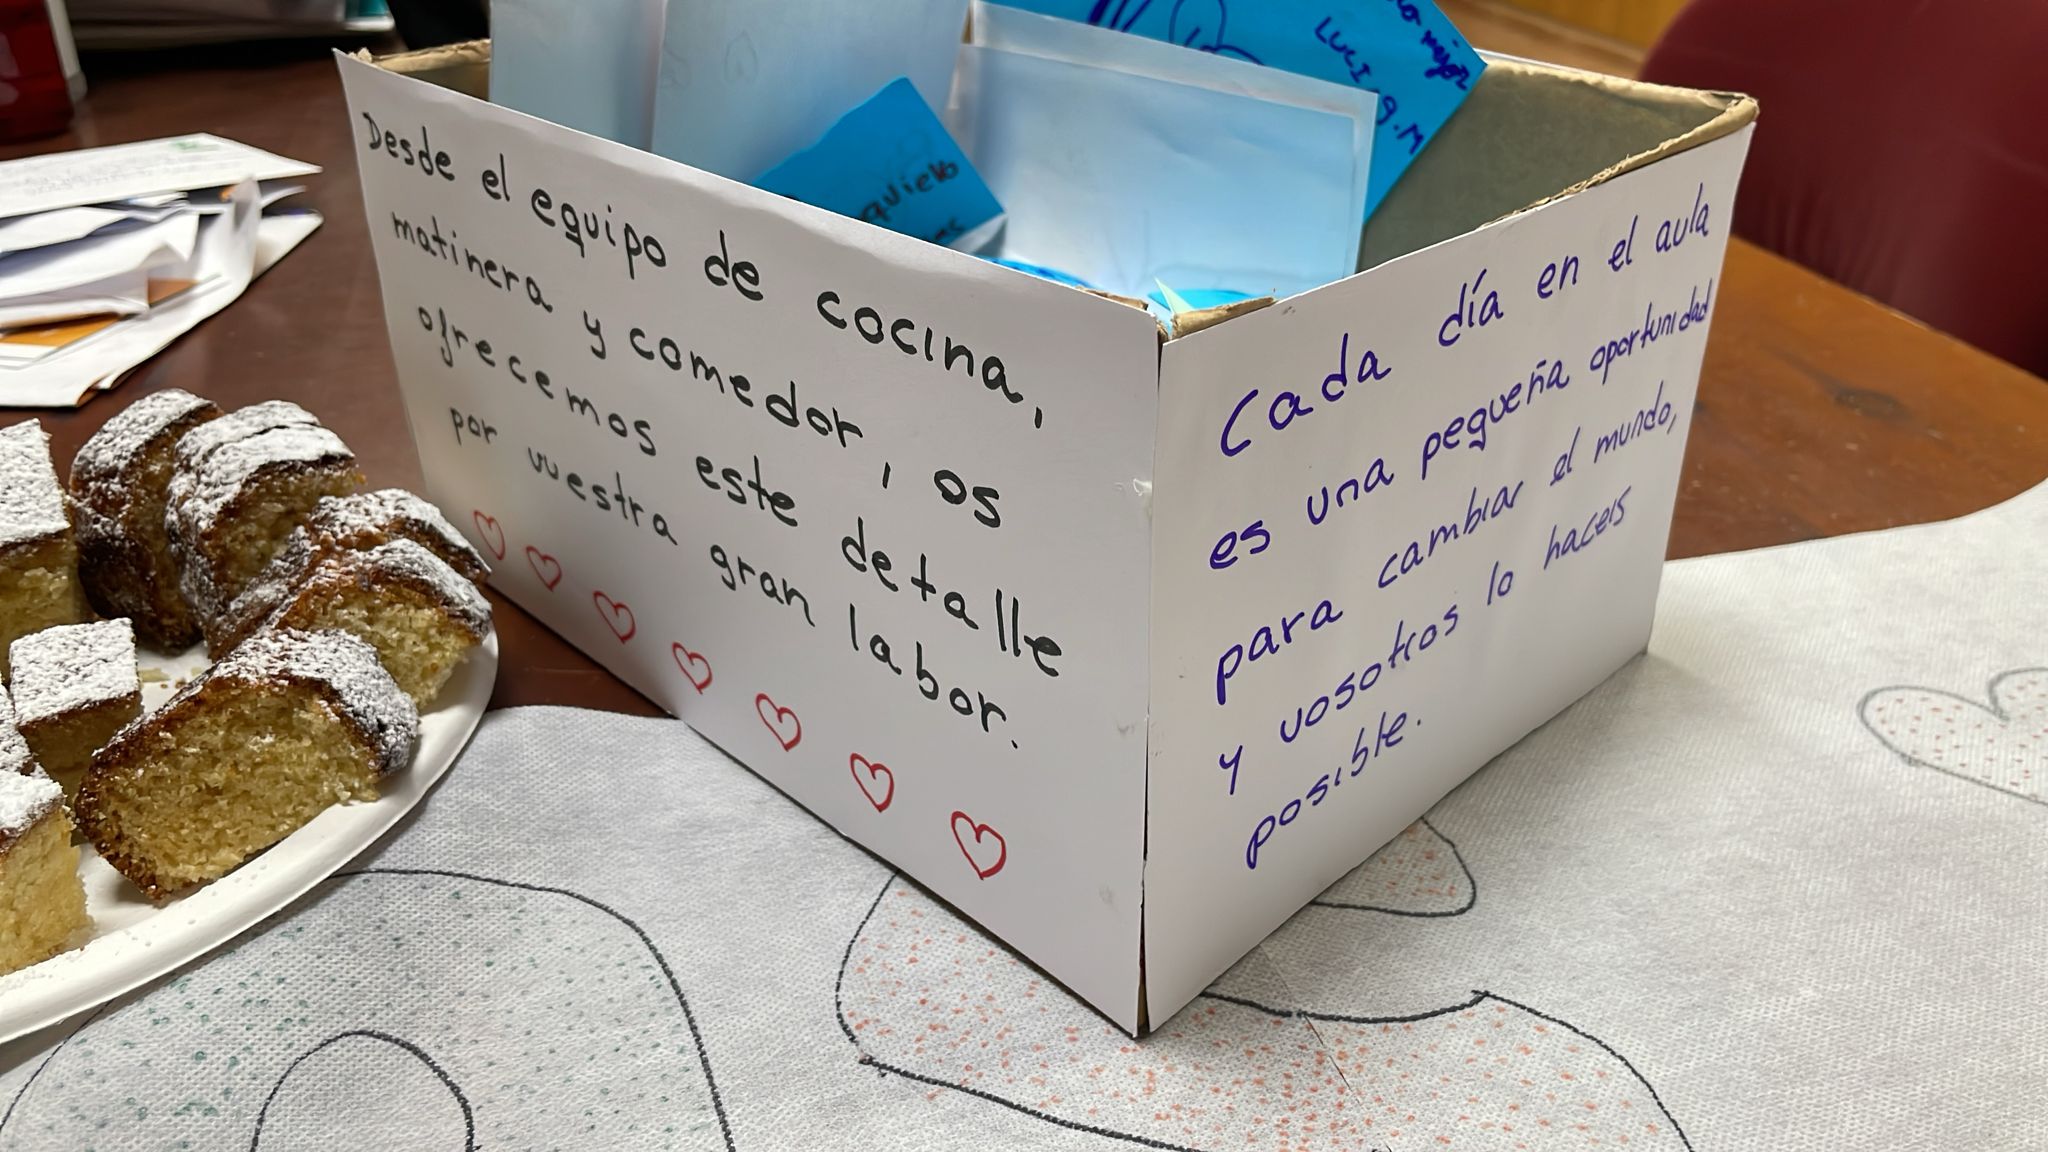 Desde el equipo de cocina,
matinera y comedor, os
ofrecemos este detalle
por vuestra gran labor.
Cada día en el aula
es una pequeña oportunidad
para cambiar el mundo,
y vosotros lo haceis
posible.